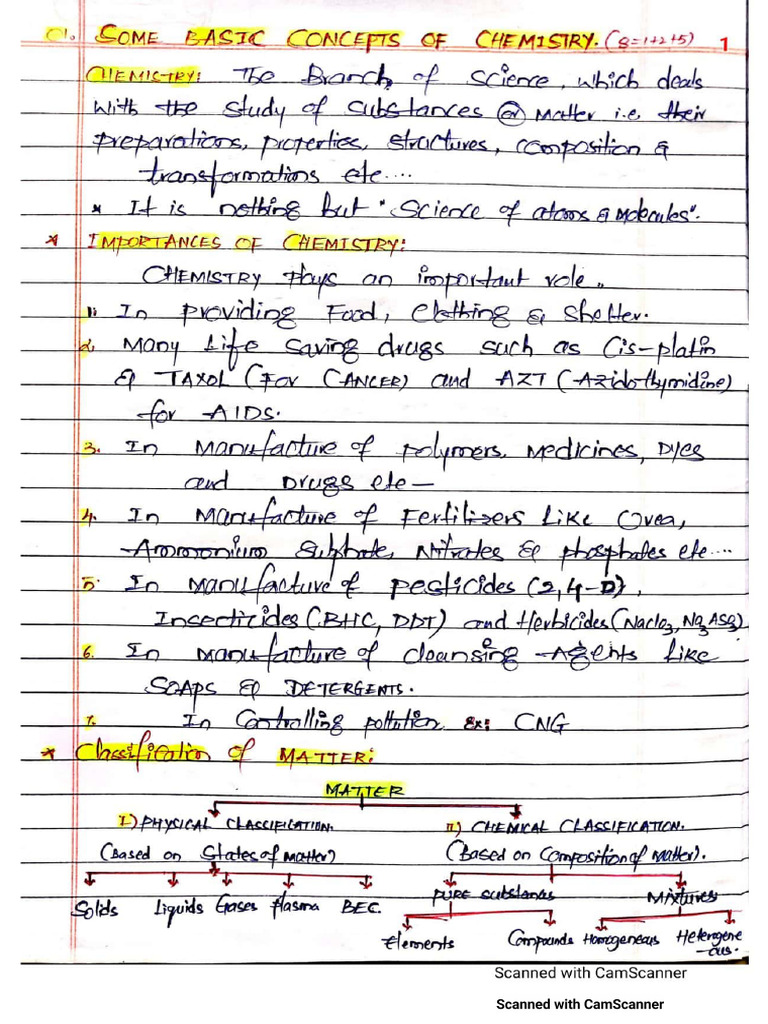 01. SOME BASIC CONCEPTS OF CHEMISTRY. (8=1+2+5) 1
CHEMISTRY: The Branch of Science, which deals
with the study of substances or Matter i.e. their
preparations, properties, structures, composition &
transformations etc....
* It is nothing but "Science of atoms & Molecules".
* IMPORTANCES OF CHEMISTRY:
CHEMISTRY plays an important role..
1. In Providing Food, Clothing & Shelter.
2. Many Life Saving drugs such as Cis-platin
& TAXOL (FOR CANCER) and AZT (-Azido-thymidine)
for -AIDS.
3. In Manufacture of Polymers, Medicines, Dyes
and Drugs etc—
4. In Manufacture of Fertilizers Like Urea,
-Ammonium Sulphate, Nitrates & phosphates etc....
5. In Manufacture of Pesticides (2,4-D),
Insecticides (BHC, DDT) and Herbicides (NaClO3, Na3ASO3)
6. In Manufacture of cleansing -Agents Like
SOAPS & DETERGENTS.
7. In Controlling pollution Ex: CNG
* Classification of MATTER:
MATTER
I) PHYSICAL CLASSIFICATION. II) CHEMICAL CLASSIFICATION.
(Based on States of matter) (Based on Composition of Matter).
Solids Liquids Gases Plasma BEC. PURE Substances Mixtures
Elements Compounds Homogeneous Heterogene
-ous.
Scanned with CamScanner
Scanned with CamScanner